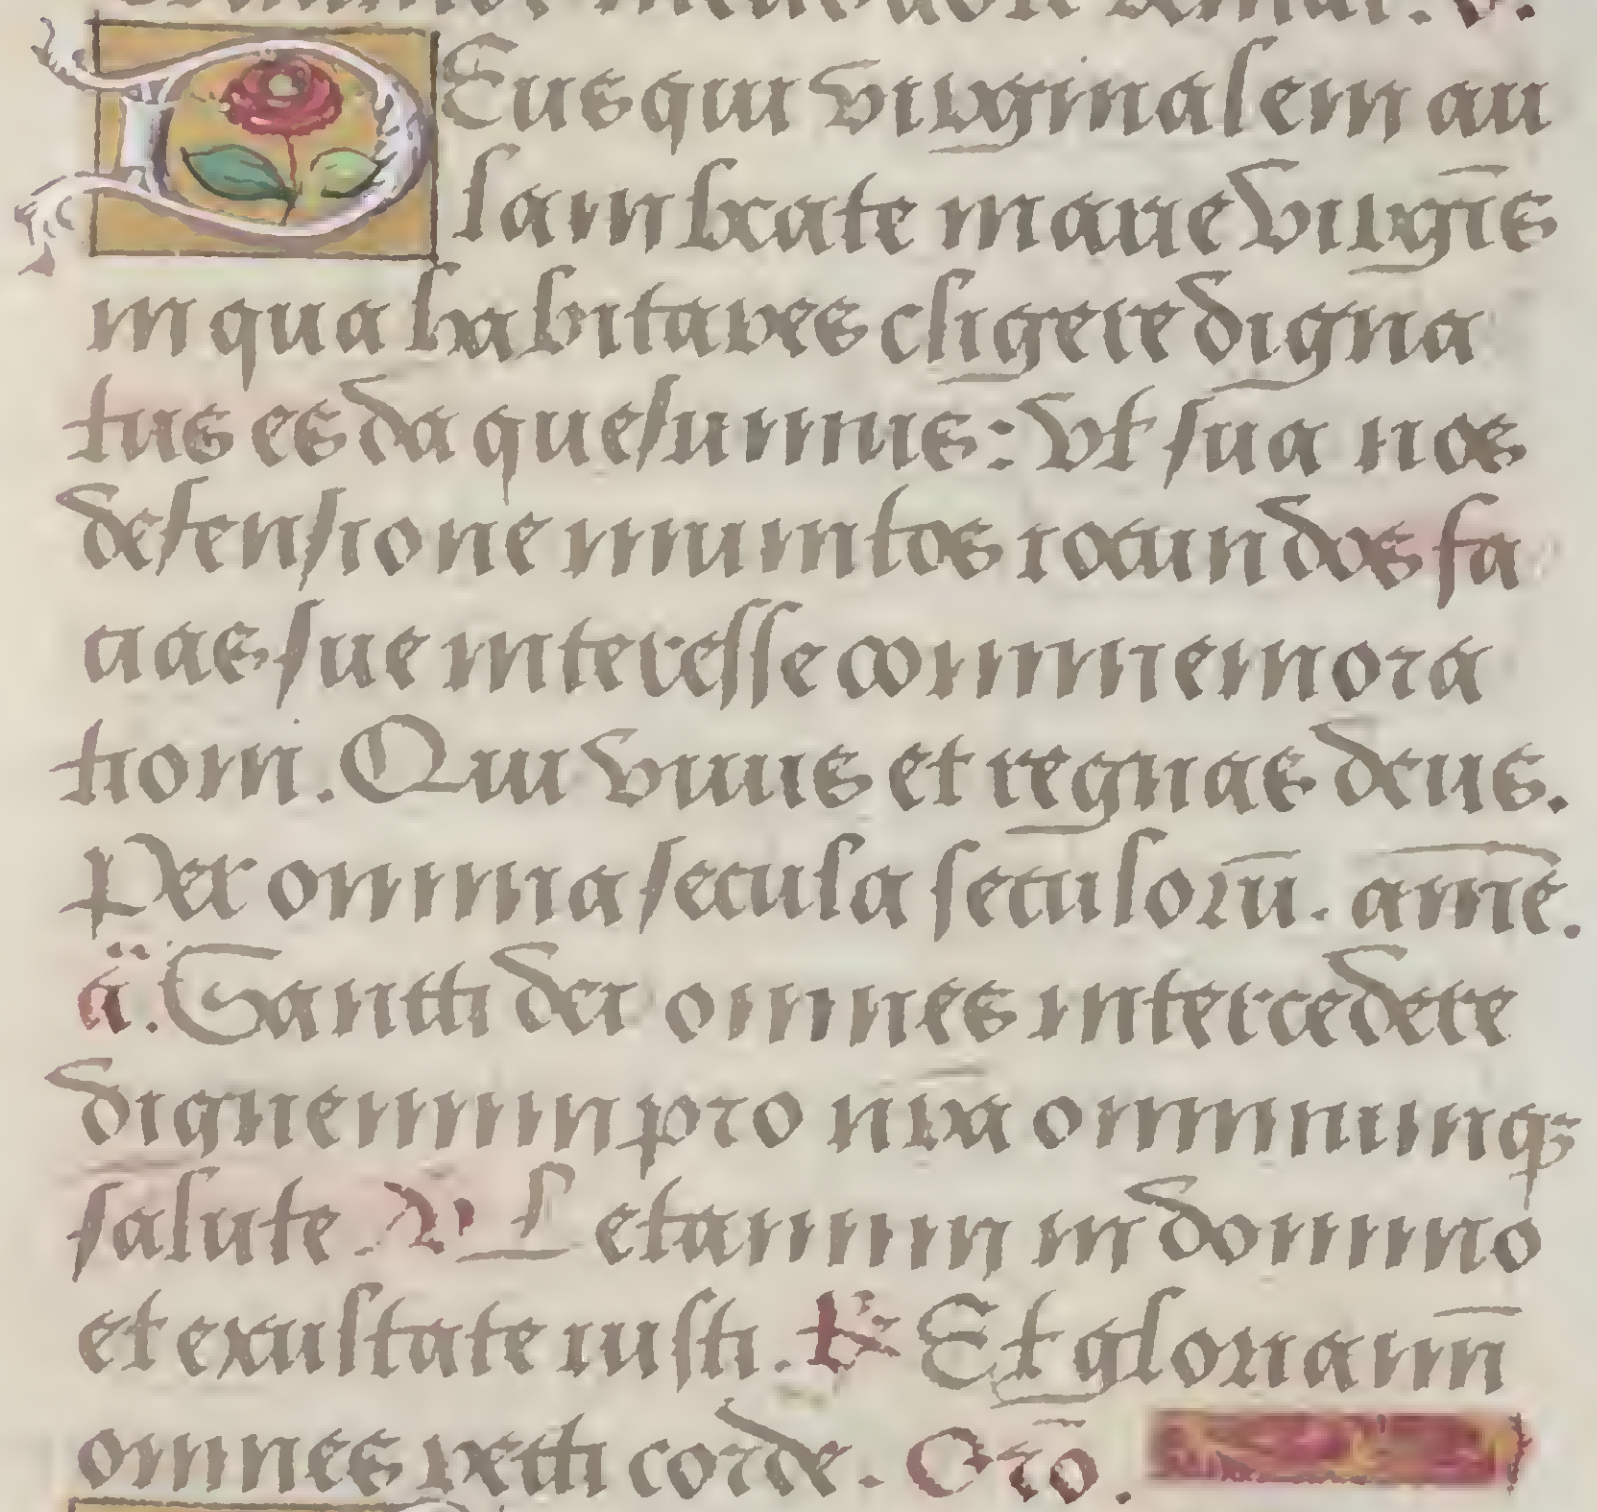 Deus qui virginalem au
lam beate marie virgīs
in qua habitares eligere digna
tus es da quesumus: Vt sua nos
defensione munitos iocundos fa
cias sue interesse commemora
tioni. Qui viuis et regnas deus.
Per omnia secula seculorū. amē.
a. Sancti dei omnes intercedere
dignemini pro nr̄a omniumq;
salute. V. Letamini in domino
et exultate iusti. R. Et gloriamī
omnes recti corde. Orō.